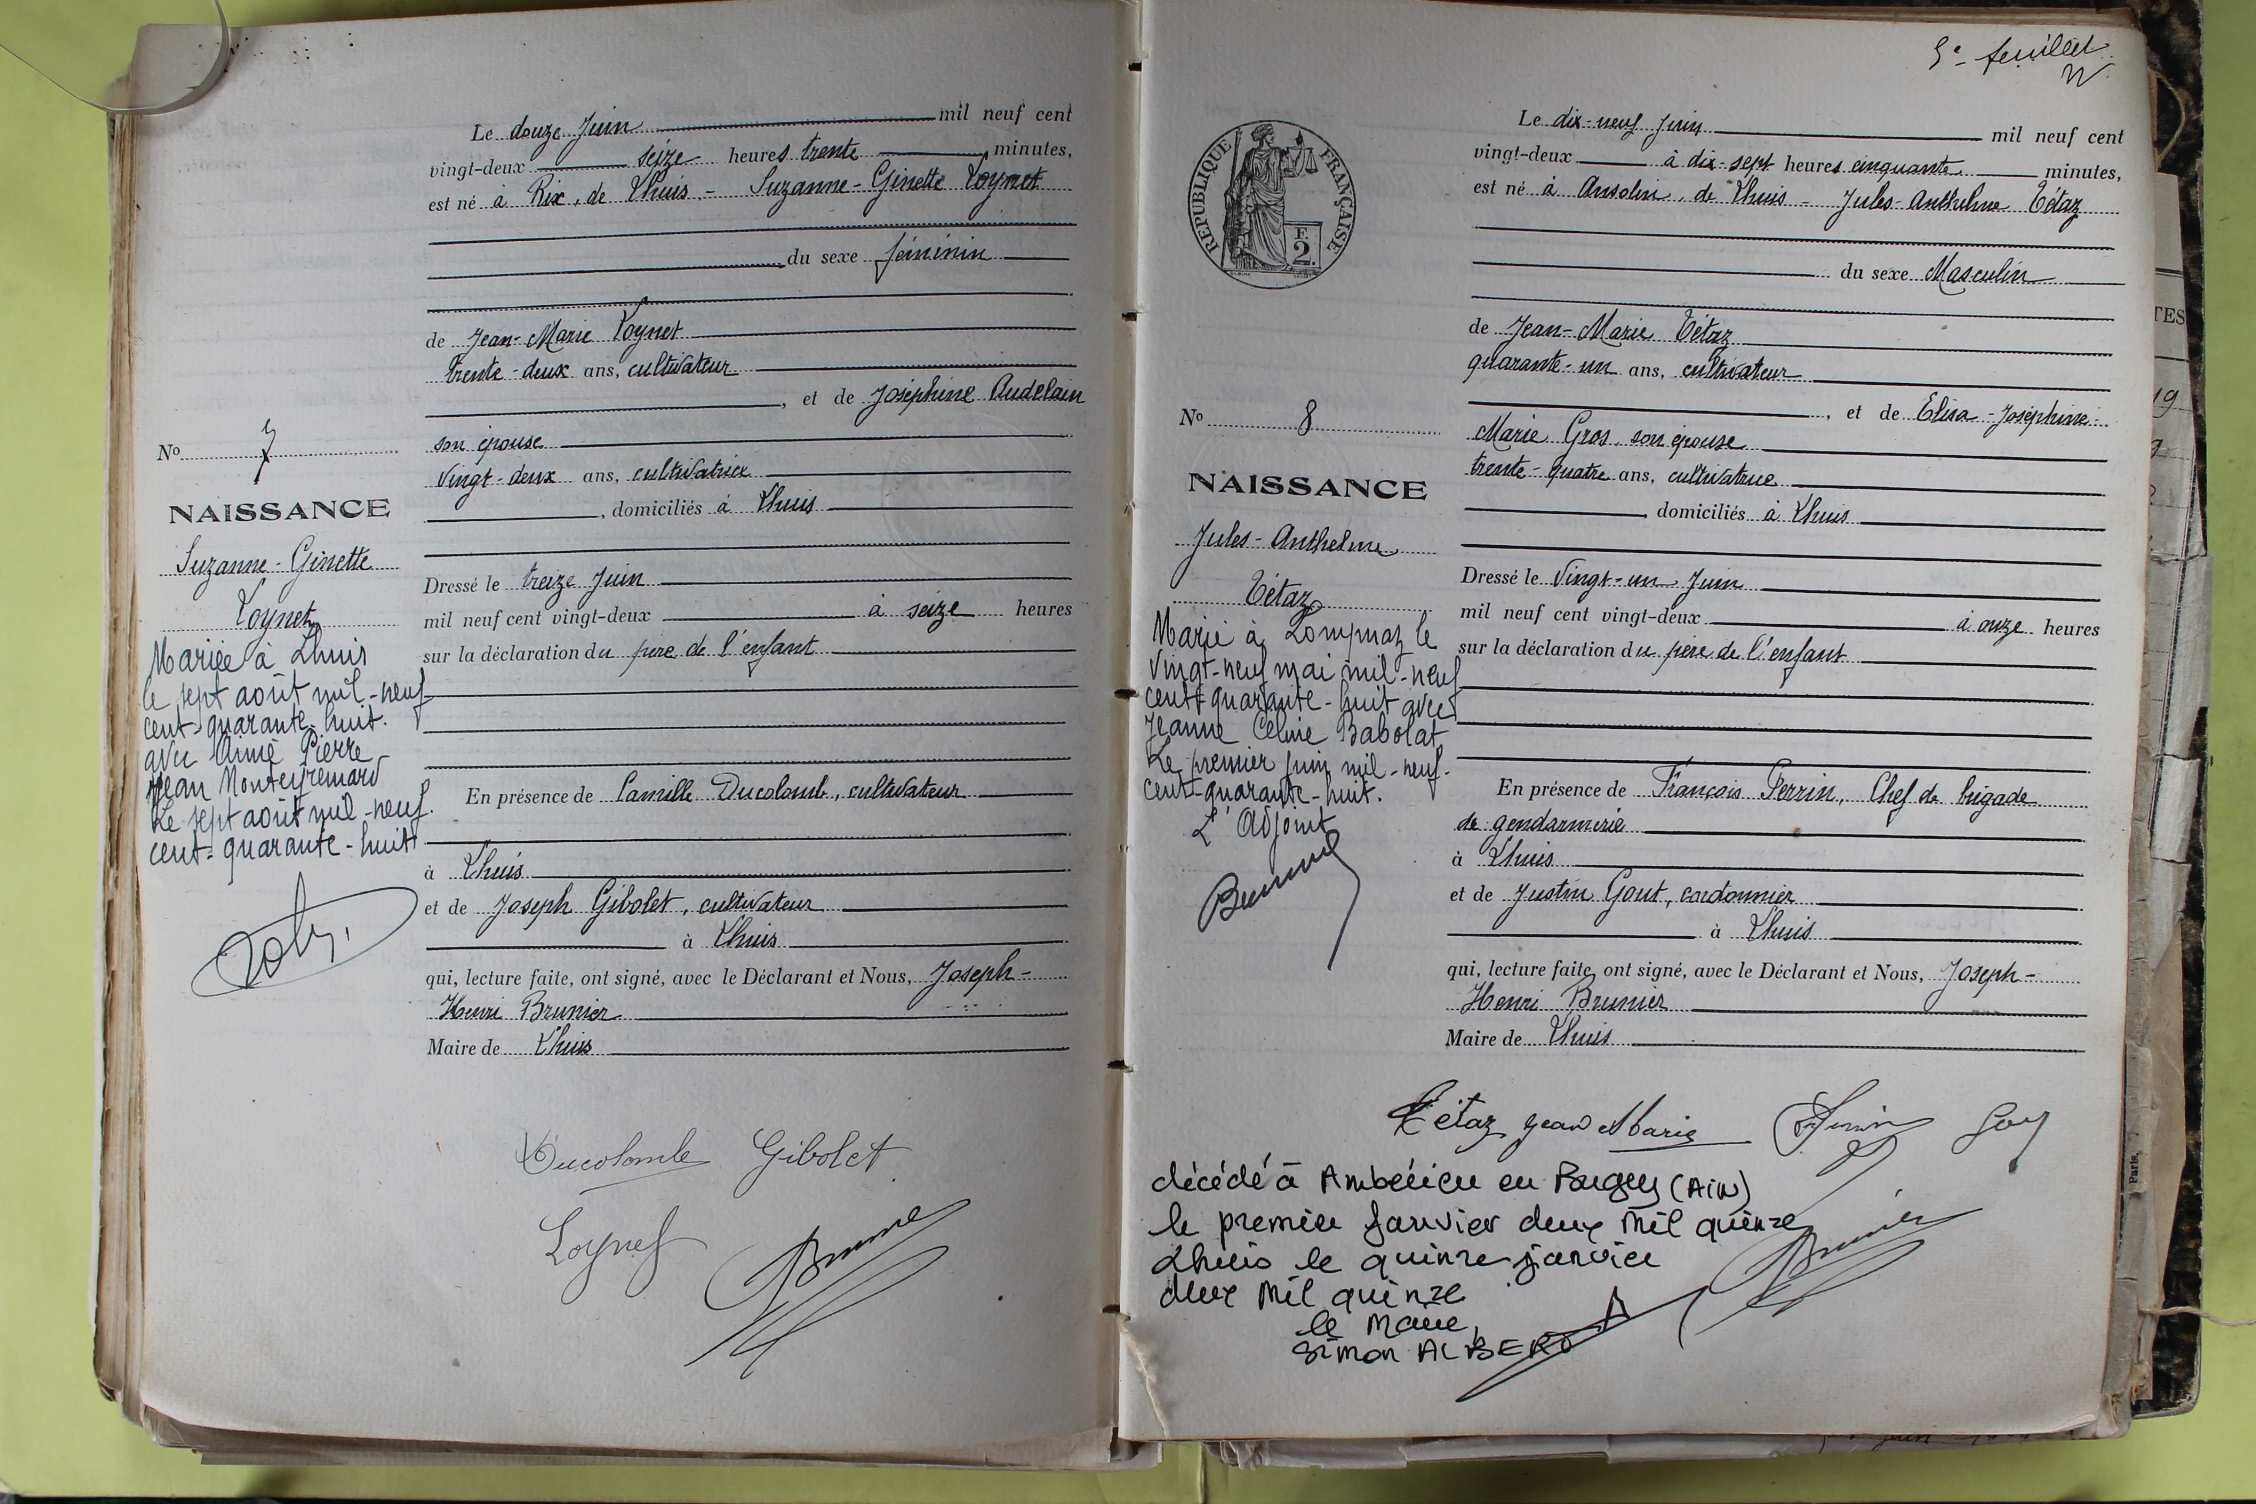 Le douze Juin mil neuf cent
vingt-deux seize heures trente minutes,
est né à Rix, de Lhuis - Suzanne-Ginette Loynet
du sexe féminin
de Jean-Marie Loynet
trente-deux ans, cultivateur
, et de Joséphine Audelain
son épouse
vingt-deux ans, cultivatrice
, domiciliés à Lhuis
Dressé le treize Juin
mil neuf cent vingt-deux à seize heures
sur la déclaration du père de l'enfant
En présence de Camille Ducolomb, cultivateur
à Lhuis
et de Joseph Gibolet, cultivateur
à Lhuis
qui, lecture faite, ont signé, avec le Déclarant et Nous, Joseph-
Henri Brunier
Maire de Lhuis
No 7
NAISSANCE
Suzanne-Ginette
Loynet
Mariée à Lhuis
le sept août mil-neuf
cent-quarante-huit.
avec Aimé Pierre
Jean Monteyremard
Le sept août mil-neuf
cent-quarante-huit
Ducolombe Gibolet
Loynet
5e feuillet
REPUBLIQUE FRANÇAISE
F.
2.
Le dix-neuf Juin mil neuf cent
vingt-deux à dix-sept heures cinquante minutes,
est né à Ansolin, de Lhuis - Jules-Anthelme Tétaz
du sexe Masculin
de Jean-Marie Tétaz
quarante-un ans, cultivateur
, et de Elisa-Joséphine-
Marie Gros, son épouse
trente-quatre ans, cultivatrice
, domiciliés à Lhuis
Dressé le vingt-un Juin
mil neuf cent vingt-deux à onze heures
sur la déclaration du père de l'enfant
En présence de François Perrin, Chef de brigade
de gendarmerie
à Lhuis
et de Justin Gout, cordonnier
à Lhuis
qui, lecture faite, ont signé, avec le Déclarant et Nous, Joseph-
Henri Brunier
Maire de Lhuis
No 8
NAISSANCE
Jules-Anthelme
Tétaz
Marié à Lompnaz le
vingt-neuf mai mil-neuf
cent-quarante-huit avec
Jeanne Céline Babolat
Le premier juin mil-neuf-
cent-quarante-huit.
L'Adjoint
Tétaz Jean Marie
Brunier
décédé à Ambérieu en Bugey (Ain)
le premier janvier deux mil quinze
Lhuis le quinze janvier
deux mil quinze
le Maire,
Simon ALBERT
TES
Paris,